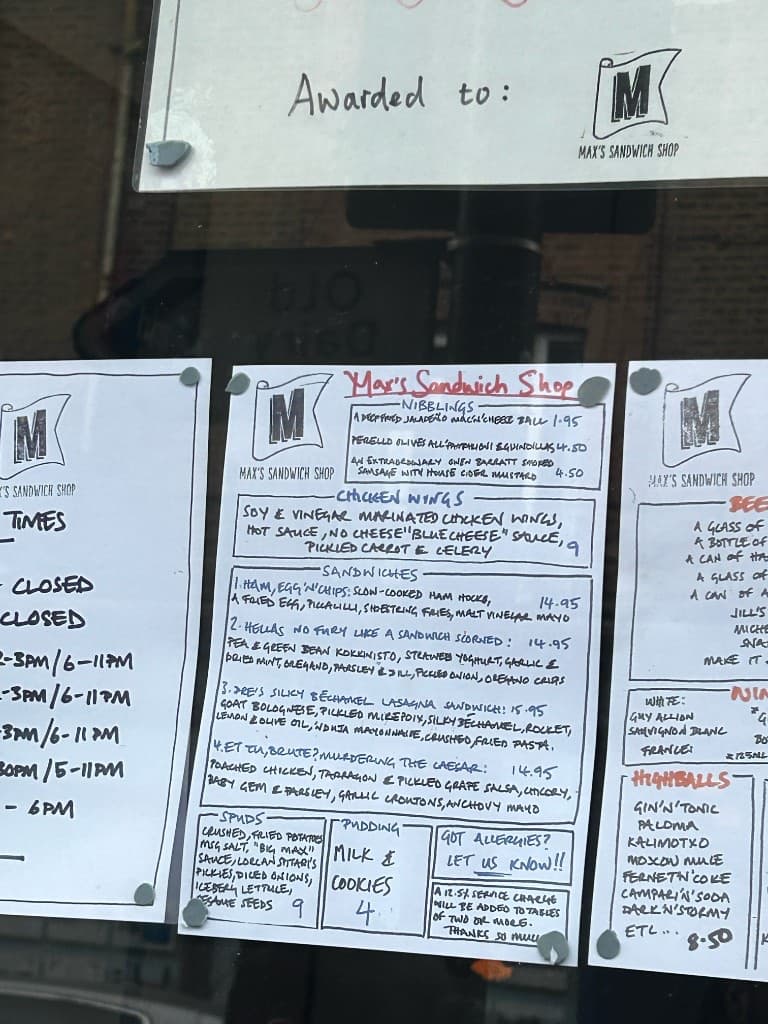 Awarded to:
M
MAX'S SANDWICH SHOP
Old
Dairy
M
X'S SANDWICH SHOP
TIMES
CLOSED
CLOSED
-3PM/6-11PM
-3PM/6-11PM
-3PM/6-11PM
30PM/5-11PM
- 6PM
M
MAX'S SANDWICH SHOP
Max's Sandwich Shop
NIBBLINGS
A DEEP FRIED JALAPEÑO MAC'N'CHEESE BALL 1.95
PERELLO OLIVES ALL'PAPRILONI & GUINDILLAS 4.50
AN EXTRAORDINARY OWEN BARRATT SMOKED
SAUSAGE WITH HOUSE CIDER MUSTARD 4.50
CHICKEN WINGS
SOY & VINEGAR MARINATED CHICKEN WINGS,
HOT SAUCE, NO CHEESE "BLUE CHEESE" SAUCE,
PICKLED CARROT & CELERY 9
SANDWICHES
1. HAM, EGG 'N' CHIPS: SLOW-COOKED HAM HOCKS, 14.95
A FRIED EGG, PICCALILLI, SHOESTRING FRIES, MALT VINEGAR MAYO
2. HELLAS NO FURY LIKE A SANDWICH SCORNED: 14.95
PEA & GREEN BEAN KOKKINISTO, STRAINED YOGHURT, GARLIC &
DRIED MINT, OREGANO, PARSLEY & DILL, PICKLED ONION, OREGANO CRISPS
3. DRE'S SILKY BÉCHAMEL LASAGNA SANDWICH: 15.95
GOAT BOLOGNESE, PICKLED MIREPOIX, SILKY BÉCHAMEL, ROCKET,
LEMON & OLIVE OIL, 'NDUJA MAYONNAISE, CRUSHED, FRIED PASTA.
4. ET TU, BRUTE? MURDERING THE CAESAR: 14.95
POACHED CHICKEN, TARRAGON & PICKLED GRAPE SALSA, CHICORY,
BABY GEM & PARSLEY, GARLIC CROUTONS, ANCHOVY MAYO
SPUDS
CRUSHED, FRIED POTATOES
MSG SALT, "BIG MAX"
SAUCE,
PICKLES, DICED ONIONS,
ICEBERG LETTUCE,
SESAME SEEDS 9
PUDDING
MILK &
COOKIES
4
GOT ALLERGIES?
LET US KNOW!!
A 12.5% SERVICE CHARGE
WILL BE ADDED TO TABLES
OF TWO OR MORE.
THANKS SO MUCH
M
MAX'S SANDWICH SHOP
BEE
A GLASS OF
A BOTTLE OF
A CAN OF HA
A GLASS OF
A CAN OF A
JILL'S
MICHE
SNA
MAKE IT
WIN
WHITE:
GUY ALLION
SAUVIGNON BLANC
FRANCE:
*125ML
HIGHBALLS
GIN'N'TONIC
PALOMA
KALIMOTXO
MOSCOW MULE
FERNET'N'COKE
CAMPARI'N'SODA
DARK'N'STORMY
ETC... 8.50